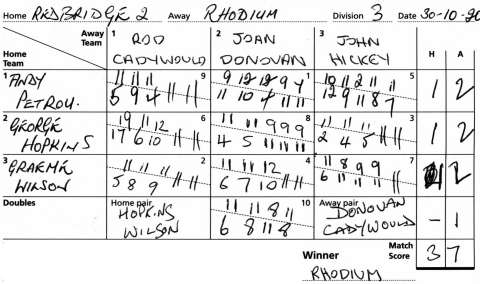 Home REDBRIDGE 2 Away RHODIUM Division 3 Date 30-10-20
Away Team 1 ROD CADYWOULD 2 JOAN DONOVAN 3 JOHN HICKEY H A
Home Team
1 ANDY PETROU. 9 11 11 11 1 9 12 9 4 5 10 11 2 11 11 1 2
5 9 4 11 10 4 11 11 12 9 11 8 7
2 GEORGE HOPKINS 6 19 11 12 8 11 8 9 9 9 3 11 11 11 1 2
17 6 10 4 5 11 11 11 2 4 5
3 GRAEME WILSON 2 11 11 11 4 11 11 12 7 11 8 9 9 2
5 8 9 6 7 10 6 11 11 11
Doubles Home pair HOPKINS WILSON 10 11 11 8 11 Away pair DONOVAN CADYWOULD - 1
6 8 11 8
Winner RHODIUM Match Score 3 7